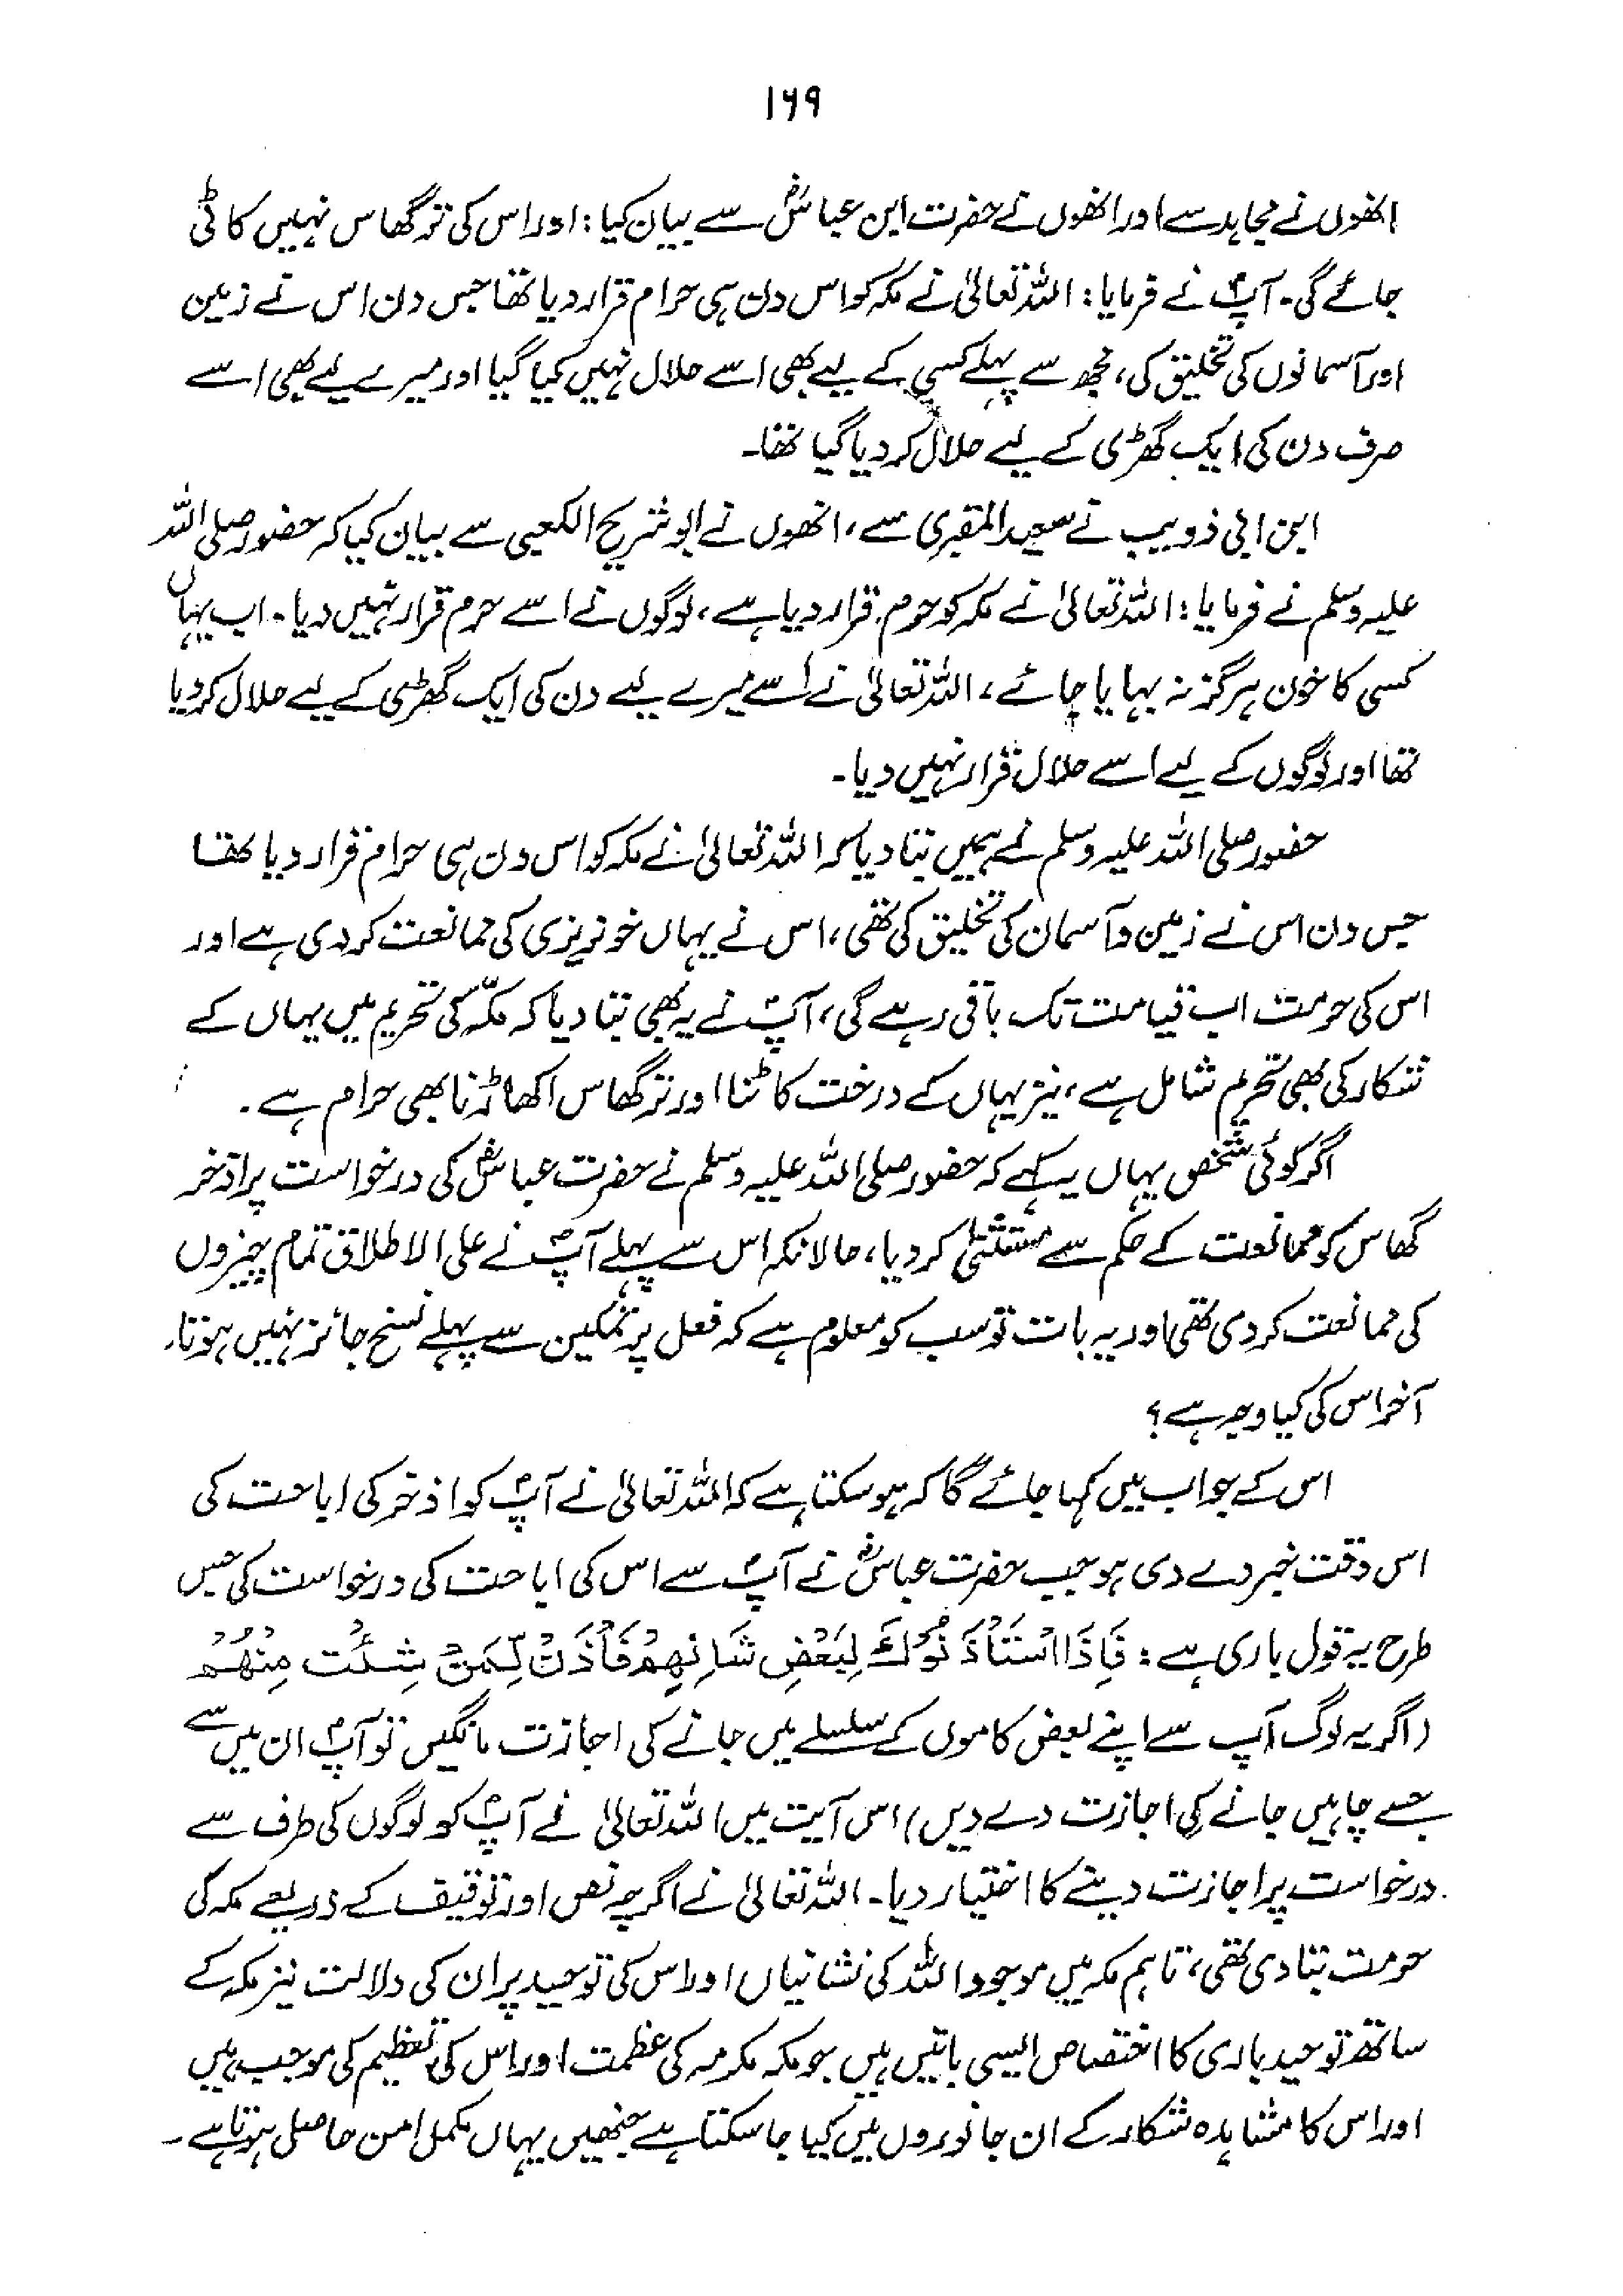 ۱۶۹
انھوں نے مجاہد سے اور انھوں نے حضرت ابن عباسؓ سے بیان کیا: اور اس کی تر گھاس نہیں کاٹی
جائے گی۔ آپؐ نے فرمایا: اللہ تعالیٰ نے مکہ کو اس دن ہی حرام قرار دیا تھا جس دن اس نے زمین
اور آسمانوں کی تخلیق کی، مجھ سے پہلے کسی کے لیے بھی اسے حلال نہیں کیا گیا اور میرے لیے بھی اسے
صرف دن کی ایک گھڑی کے لیے حلال کر دیا گیا تھا۔
ابن ابی ذویب نے سعید المقبری سے، انھوں نے ابو شریح الکعبی سے بیان کیا کہ حضور صلی اللہ
علیہ وسلم نے فرمایا: اللہ تعالیٰ نے مکہ کو حرم قرار دیا ہے، لوگوں نے اسے حرم قرار نہیں دیا۔ اب یہاں
کسی کا خون ہرگز نہ بہایا جائے، اللہ تعالیٰ نے اسے میرے لیے دن کی ایک گھڑی کے لیے حلال کر دیا
تھا اور لوگوں کے لیے اسے حلال قرار نہیں دیا۔
حضور صلی اللہ علیہ وسلم نے ہمیں بتا دیا کہ اللہ تعالیٰ نے مکہ کو اس دن ہی حرام قرار دیا تھا
جس دن اس نے زمین و آسمان کی تخلیق کی تھی، اس نے یہاں خونریزی کی ممانعت کر دی ہے اور
اس کی حرمت اب قیامت تک باقی رہے گی، آپؐ نے یہ بھی بتا دیا کہ مکّہ کی تحریم میں یہاں کے
شکار کی بھی تحریم شامل ہے، نیز یہاں کے درخت کاٹنا اور تر گھاس اکھاڑنا بھی حرام ہے۔
اگر کوئی شخص یہاں یہ کہے کہ حضور صلی اللہ علیہ وسلم نے حضرت عباسؓ کی درخواست پر اذخر
گھاس کو ممانعت کے حکم سے مستثنیٰ کر دیا، حالانکہ اس سے پہلے آپؐ نے علی الاطلاق تمام چیزوں
کی ممانعت کر دی تھی اور یہ بات تو سب کو معلوم ہے کہ فعل پر تمکین سے پہلے نسخ جائز نہیں ہوتا۔
آخر اس کی کیا وجہ ہے؟
اس کے جواب میں کہا جائے گا کہ ہو سکتا ہے کہ اللہ تعالیٰ نے آپؐ کو اذخر کی اباحت کی
اس وقت خبر دے دی ہو جب حضرت عباسؓ نے آپؐ سے اس کی اباحت کی درخواست کی جس
طرح یہ قول باری ہے: فَاِذَا اسْتَأْذَنُوْكَ لِبَعْضِ شَأْنِهِمْ فَأْذَنْ لِّمَنْ شِئْتَ مِنْهُمْ
(اگر یہ لوگ آپ سے اپنے بعض کاموں کے سلسلے میں جانے کی اجازت مانگیں تو آپؐ ان میں سے
جسے چاہیں جانے کی اجازت دے دیں) اس آیت میں اللہ تعالیٰ نے آپؐ کو لوگوں کی طرف سے
درخواست پر اجازت دینے کا اختیار دیا۔ اللہ تعالیٰ نے اگرچہ نص اور توقیف کے ذریعے مکہ کی
حرمت بتا دی تھی، تاہم مکہ میں موجود اللہ کی نشانیاں اور اس کی توحید پر ان کی دلالت نیز مکہ کے
ساتھ توحید باری کا اختصاص ایسی باتیں ہیں جو مکہ مکرمہ کی عظمت اور اس کی تعظیم کی موجب ہیں
اور اس کا مشاہدہ شکار کے ان جانوروں میں کیا جا سکتا ہے جنھیں یہاں مکمل امن حاصل ہوتا ہے۔